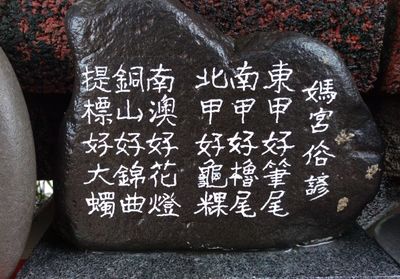 媽宮俗諺
東甲好筆尾
南甲好櫓尾
北甲好龜粿
南澳好花燈
銅山好錦曲
提標好大蠋